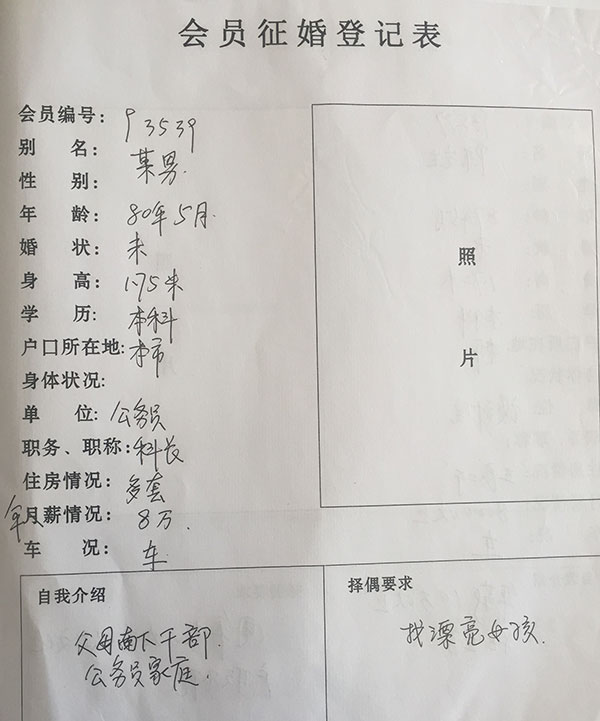 会员征婚登记表
会员编号: 93539
别 名: 某男
性 别:
年 龄: 80年5月.
婚 状: 未
身 高: 1.75米
学 历: 本科
户口所在地: 本市
身体状况:
单 位: 公务员
职务、职称: 科长
住房情况: 多套
年月薪情况: 8万.
车 况: 车.
照
片
自我介绍
父母南下干部.
公务员家庭.
择偶要求
找漂亮女孩.